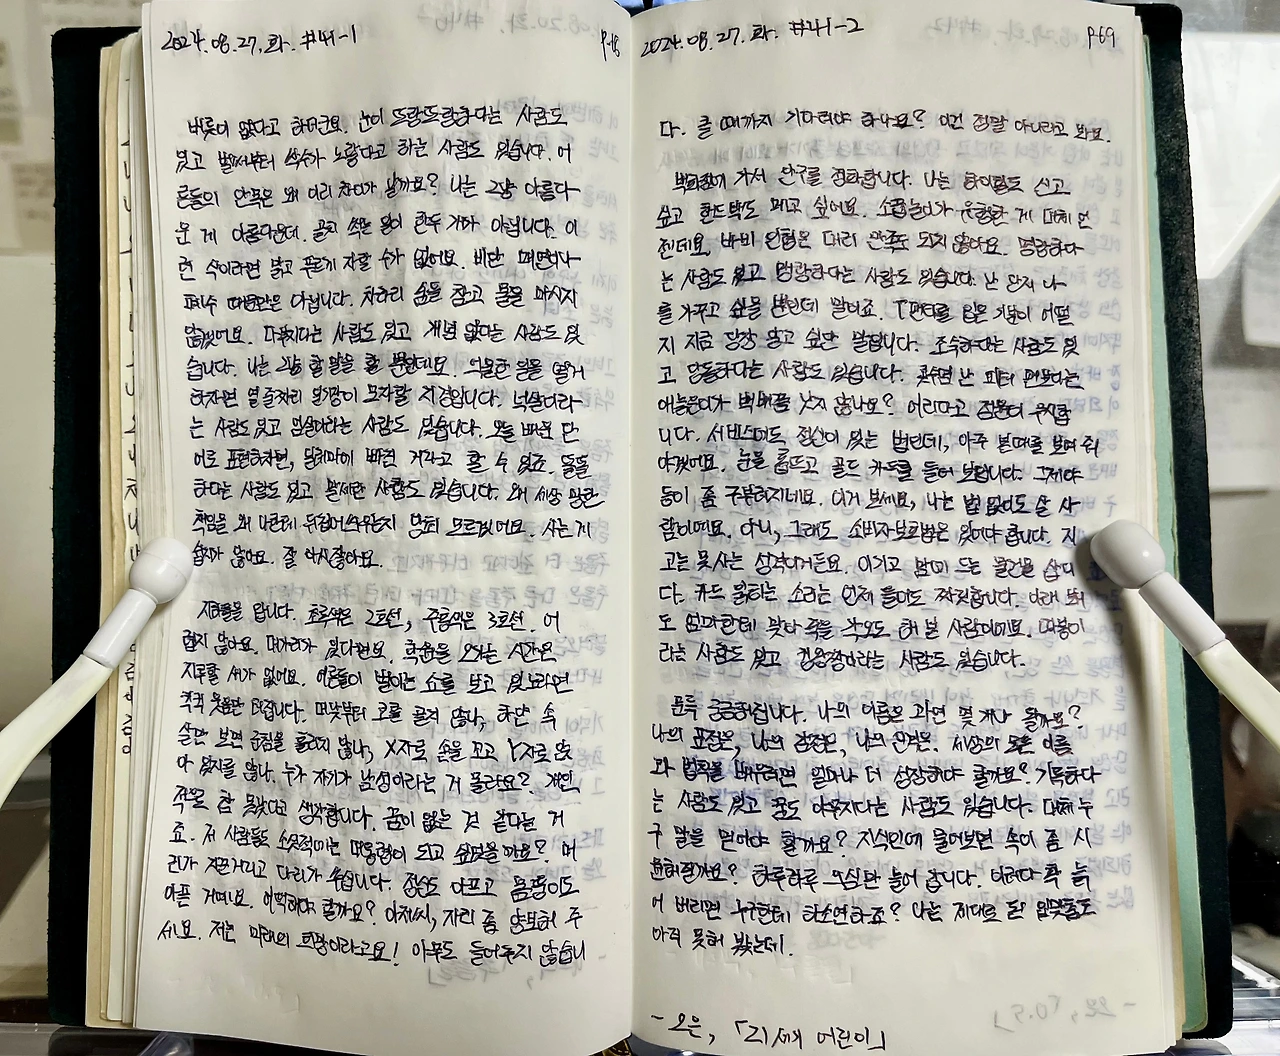 2024.08.27.화. #41-1
P.68
버릇이 없다고 하더군요. 눈이 또랑또랑하다는 사람도
있고 벌써부터 싹수가 노랗다고 하는 사람도 있습니다. 어
른들의 안목은 왜 이리 차이가 날까요? 나는 그냥 아름다
운 게 아름다운데. 골치 썩는 일이 한두 개가 아닙니다. 이
런 식이라면 밝고 푸르게 자랄 수가 없어요. 비단
때문만은 아닙니다. 차라리 숨을 참고 물을 마시지
않겠어요. 다부지다는 사람도 있고 개념 없다는 사람도 있
습니다. 나는 그냥 할 말을 할 뿐인데요. 억울한 일을 열거
하자면 열 손가락 발가락이 모자랄 지경입니다. 넉살이라
는 사람도 있고 엄살이라는 사람도 있습니다. 오늘 배운 단
어로 표현하자면, 딜레마에 빠진 거라고 할 수 있죠. 똘똘
하다는 사람도 있고 맹세한 사람도 있습니다. 왜 세상 망한
책임을 왜 나한테 뒤집어씌우는지 당최 모르겠어요. 사는 게
쉽지가 않아요. 잘 아시잖아요.
지하철을 탑니다. 초록색은 2호선, 주황색은 3호선. 어
렵지 않아요. 머리가 있다면요. 학원을 오가는 시간은
지루할 새가 없어요. 어른들이 벌이는 쇼를 보고 있노라면
킥킥 웃음만 터집니다. 대낮부터 코를 골지 않나, 하얀 속
살만 보면 군침을 흘리지 않나, X자로 손을 꼬고 Y자로 앉
아 있지를 않나. 누가 자기가 남성이라는 거 몰라요? 개인
적으로 참 못났다고 생각합니다. 꿈이 없는 것 같다는 거
죠. 저 사람들도 소싯적에는 대통령이 되고 싶었을까요? 머
리가 지끈거리고 다리가 쑤십니다. 정신도 아프고 몸뚱이도
아픈 거예요. 어떡해야 할까요? 아저씨, 자리 좀 양보해 주
세요. 저는 미래의 희망이라고요! 아무도 들어주지 않습니
2024.08.27.화. #41-2
P.69
다. 클 때까지 기다려야 하나요? 이건 정말 아니라고 봐요.
백화점에 가서 완구를 접합니다. 나는 하이힐도 신고
싶고 핸드백도 메고 싶어요. 소꿉놀이가 유행한 게 대체 언
젠데요. 바비 인형은 대리 만족도 되지 않아요. 명랑하다
는 사람도 있고 맹랑하다는 사람도 있습니다. 난 단지 나
를 가꾸고 싶을 뿐인데 말이죠. T팬티를 입은 기분이 어떨
지 지금 당장 알고 싶단 말입니다. 조숙하다는 사람도 있
고 앙큼하다는 사람도 있습니다. 글쎄요 난 피터 팬보다는
애늙은이가 백배쯤 낫지 않나요? 어리다고 점원이 무시합
니다. 서비스에도 정신이 있는 법인데, 아주 본때를 보여 줘
야겠어요. 눈을 흡뜨고 골드 카드를 들어 보입니다. 그제야
등이 좀 구부러지네요. 이거 보세요, 나는 법 없이도 살 사
람이에요. 아니, 그래도 소비자보호법은 있어야 합니다. 지
고는 못 사는 성격이거든요. 이기고 맘에 드는 물건을 삽니
다. 카드 긁히는 소리는 언제 들어도 짜릿합니다. 이래 봬
도 엄마한테 맞아 죽을 각오도 해 본 사람이에요. 때쟁이
라는 사람도 있고 겁쟁이라는 사람도 있습니다.
문득 궁금해집니다. 나의 이름은 과연 몇 개나 될까요?
나의 표정은, 나의 감정은, 나의 운명은. 세상의 모든 이름
과 법칙을 배우려면 얼마나 더 성장해야 할까요? 기특하다
는 사람도 있고 꿈도 야무지다는 사람도 있습니다. 대체 누
구 말을 믿어야 할까요? 지식인에 물어보면 속이 좀 시
원해질까요? 하루하루 의심만 늘어 갑니다. 이러다 확 늙
어 버리면 누구한테 하소연하죠? 나는 제대로 된 입맞춤도
아직 못해 봤는데.
- 오은, 「21세기 어린이」